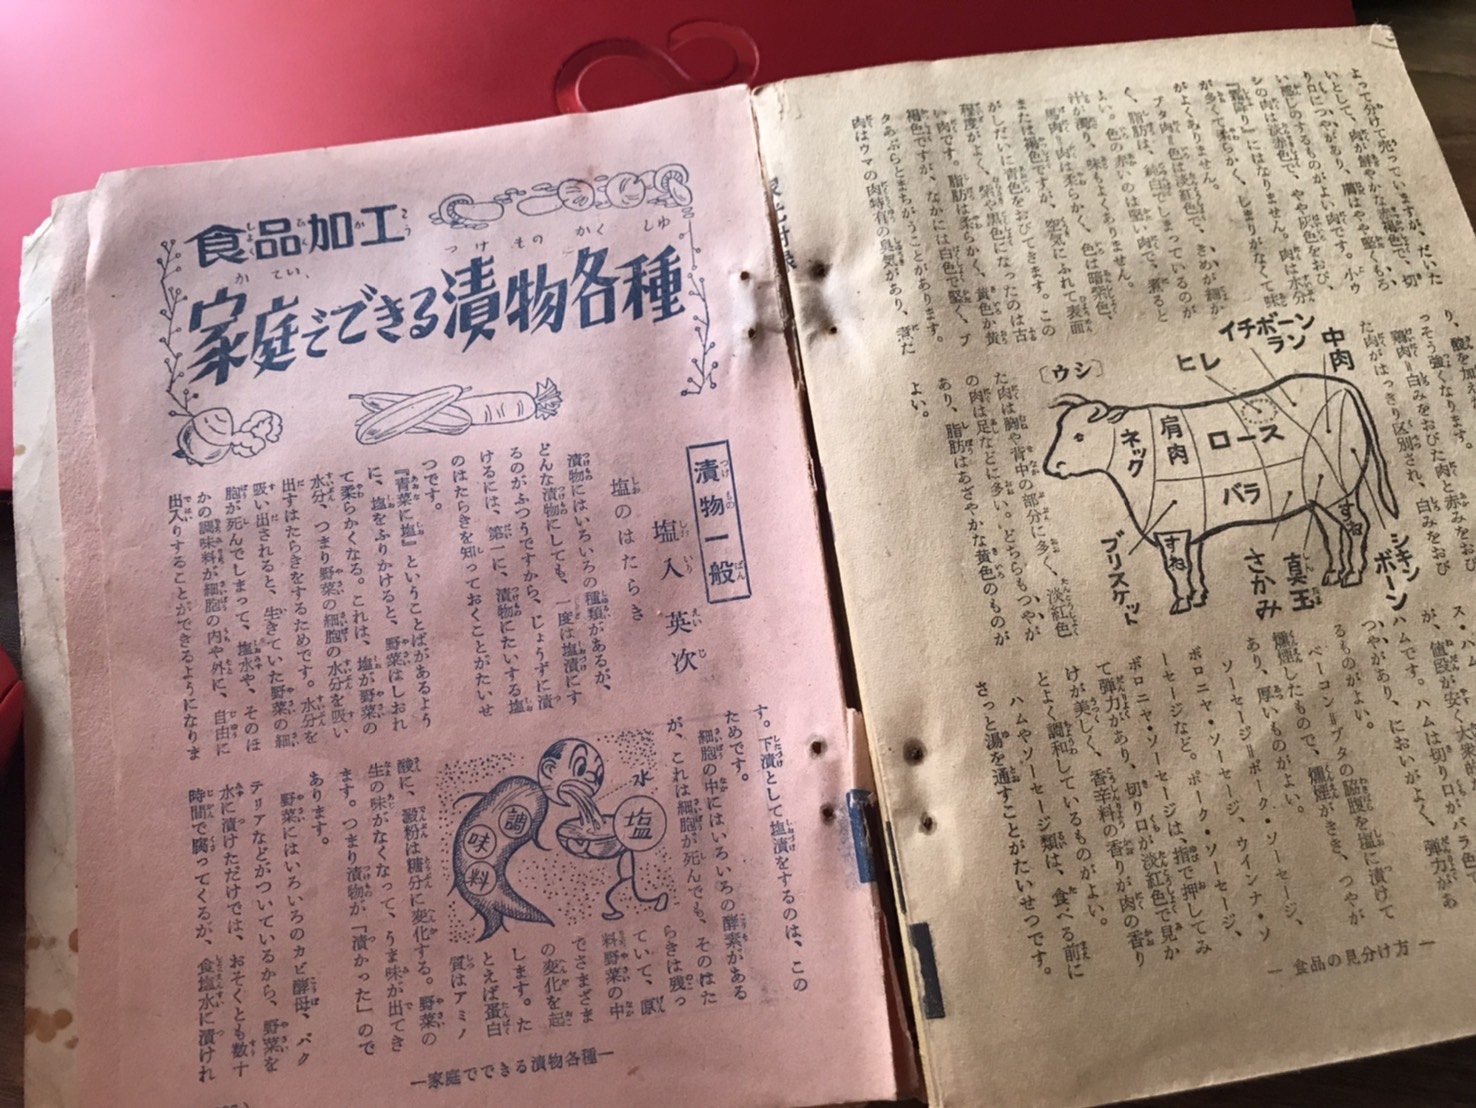 よって分けて売っていますが、だいた
いとして、肉が鮮やかな赤褐色で、切
り口につやがあり、脂はやや堅くもろ
い感じのするものがよい肉です。小ウ
シの肉は淡赤色で、やや灰色をおび、
『霜降り』にはなりません。肉は水分
が多くて柔らかく、しまりがなくて味
がよくありません。
ブタ肉=色は淡紅色で、きめが細か
く、脂肪は、純白でしまっているのが
よい。色の赤いのは堅い肉で、煮ると
汁が濁り、味もよくありません。
馬肉=肉は柔らかく、色は暗紫色、
または褐色ですが、空気にふれて表面
がしだいに青色をおびてきます。この
程度がよく、紫や黒色になったのは古
い肉です。脂肪は柔らかく、黄色か黄
褐色ですが、なかには白色で堅く、ブ
タあぶらとまちがうことがあります。
肉はウマの肉特有の臭気があり、煮た
り、酸を加え
っそう強くなります。
鶏肉=白みをおびた肉と赤みをおび
た肉がはっきり区別され、白みをおび
〔ウシ〕
ヒレ
イチボーン
ラン
中肉
ネック
肩肉
ロース
バラ
すね
すね
ブリスケット
さかみ
真玉
シキン
ボーン
た肉は胸や背中の部分に多く、淡紅色
の肉は足などに多い。どちらもつやが
あり、脂肪はあざやかな黄色のものが
よい。
ス・ハム
が、値段が安く大衆的
ハムです。ハムは切り口がバラ色で
つやがあり、においがよく、弾力があ
るものがよい。
ベーコン=ブタの脇腹を塩に漬けて
燻煙したもので、燻煙がきき、つやが
あり、厚いものがよい。
ソーセージ=ポーク・ソーセージ、
ボロニヤ・ソーセージ、ウインナ・ソ
ーセージなど。ポーク・ソーセージ、
ボロニヤ・ソーセージは、指で押してみ
て弾力があり、切り口が淡紅色で見か
けが美しく、香辛料の香りが肉の香り
とよく調和しているものがよい。
ハムやソーセージ類は、食べる前に
さっと湯を通すことがたいせつです。
― 食品の見分け方 ―
食品加工
家庭でできる漬物各種
漬物一般
塩入英次
塩のはたらき
漬物にはいろいろの種類があるが、
どんな漬物にしても、一度は塩漬にす
るのがふつうですから、じょうずに漬
けるには、第一に、漬物にたいする塩
のはたらきを知っておくことがたいせ
つです。
『青菜に塩』ということばがあるよう
に、塩をふりかけると、野菜はしおれ
て柔らかくなる。これは、塩が野菜の
水分、つまり野菜の細胞の水分を吸い
出すはたらきをするためです。水分を
吸い出されると、生きていた野菜の細
胞が死んでしまって、塩水や、そのほ
かの調味料が細胞の内や外に、自由に
出入りすることができるようになりま
す。下漬として塩漬をするのは、この
ためです。
細胞の中にはいろいろの酵素がある
が、これは細胞が死んでも、そのはた
らきは残っ
ていて、原
料野菜の中
でさまざま
の変化を起
します。た
とえば蛋白
質はアミノ
水
塩
調味料
酸に、澱粉は糖分に変化する。野菜の
生の味がなくなって、うま味が出てき
ます。つまり漬物が、『漬かった』ので
あります。
野菜にはいろいろのカビ酵母、バク
テリアなどがついているから、野菜を
水に漬けただけでは、おそくとも数十
時間で腐ってくるが、食塩水に漬けれ
―家庭でできる漬物各種―